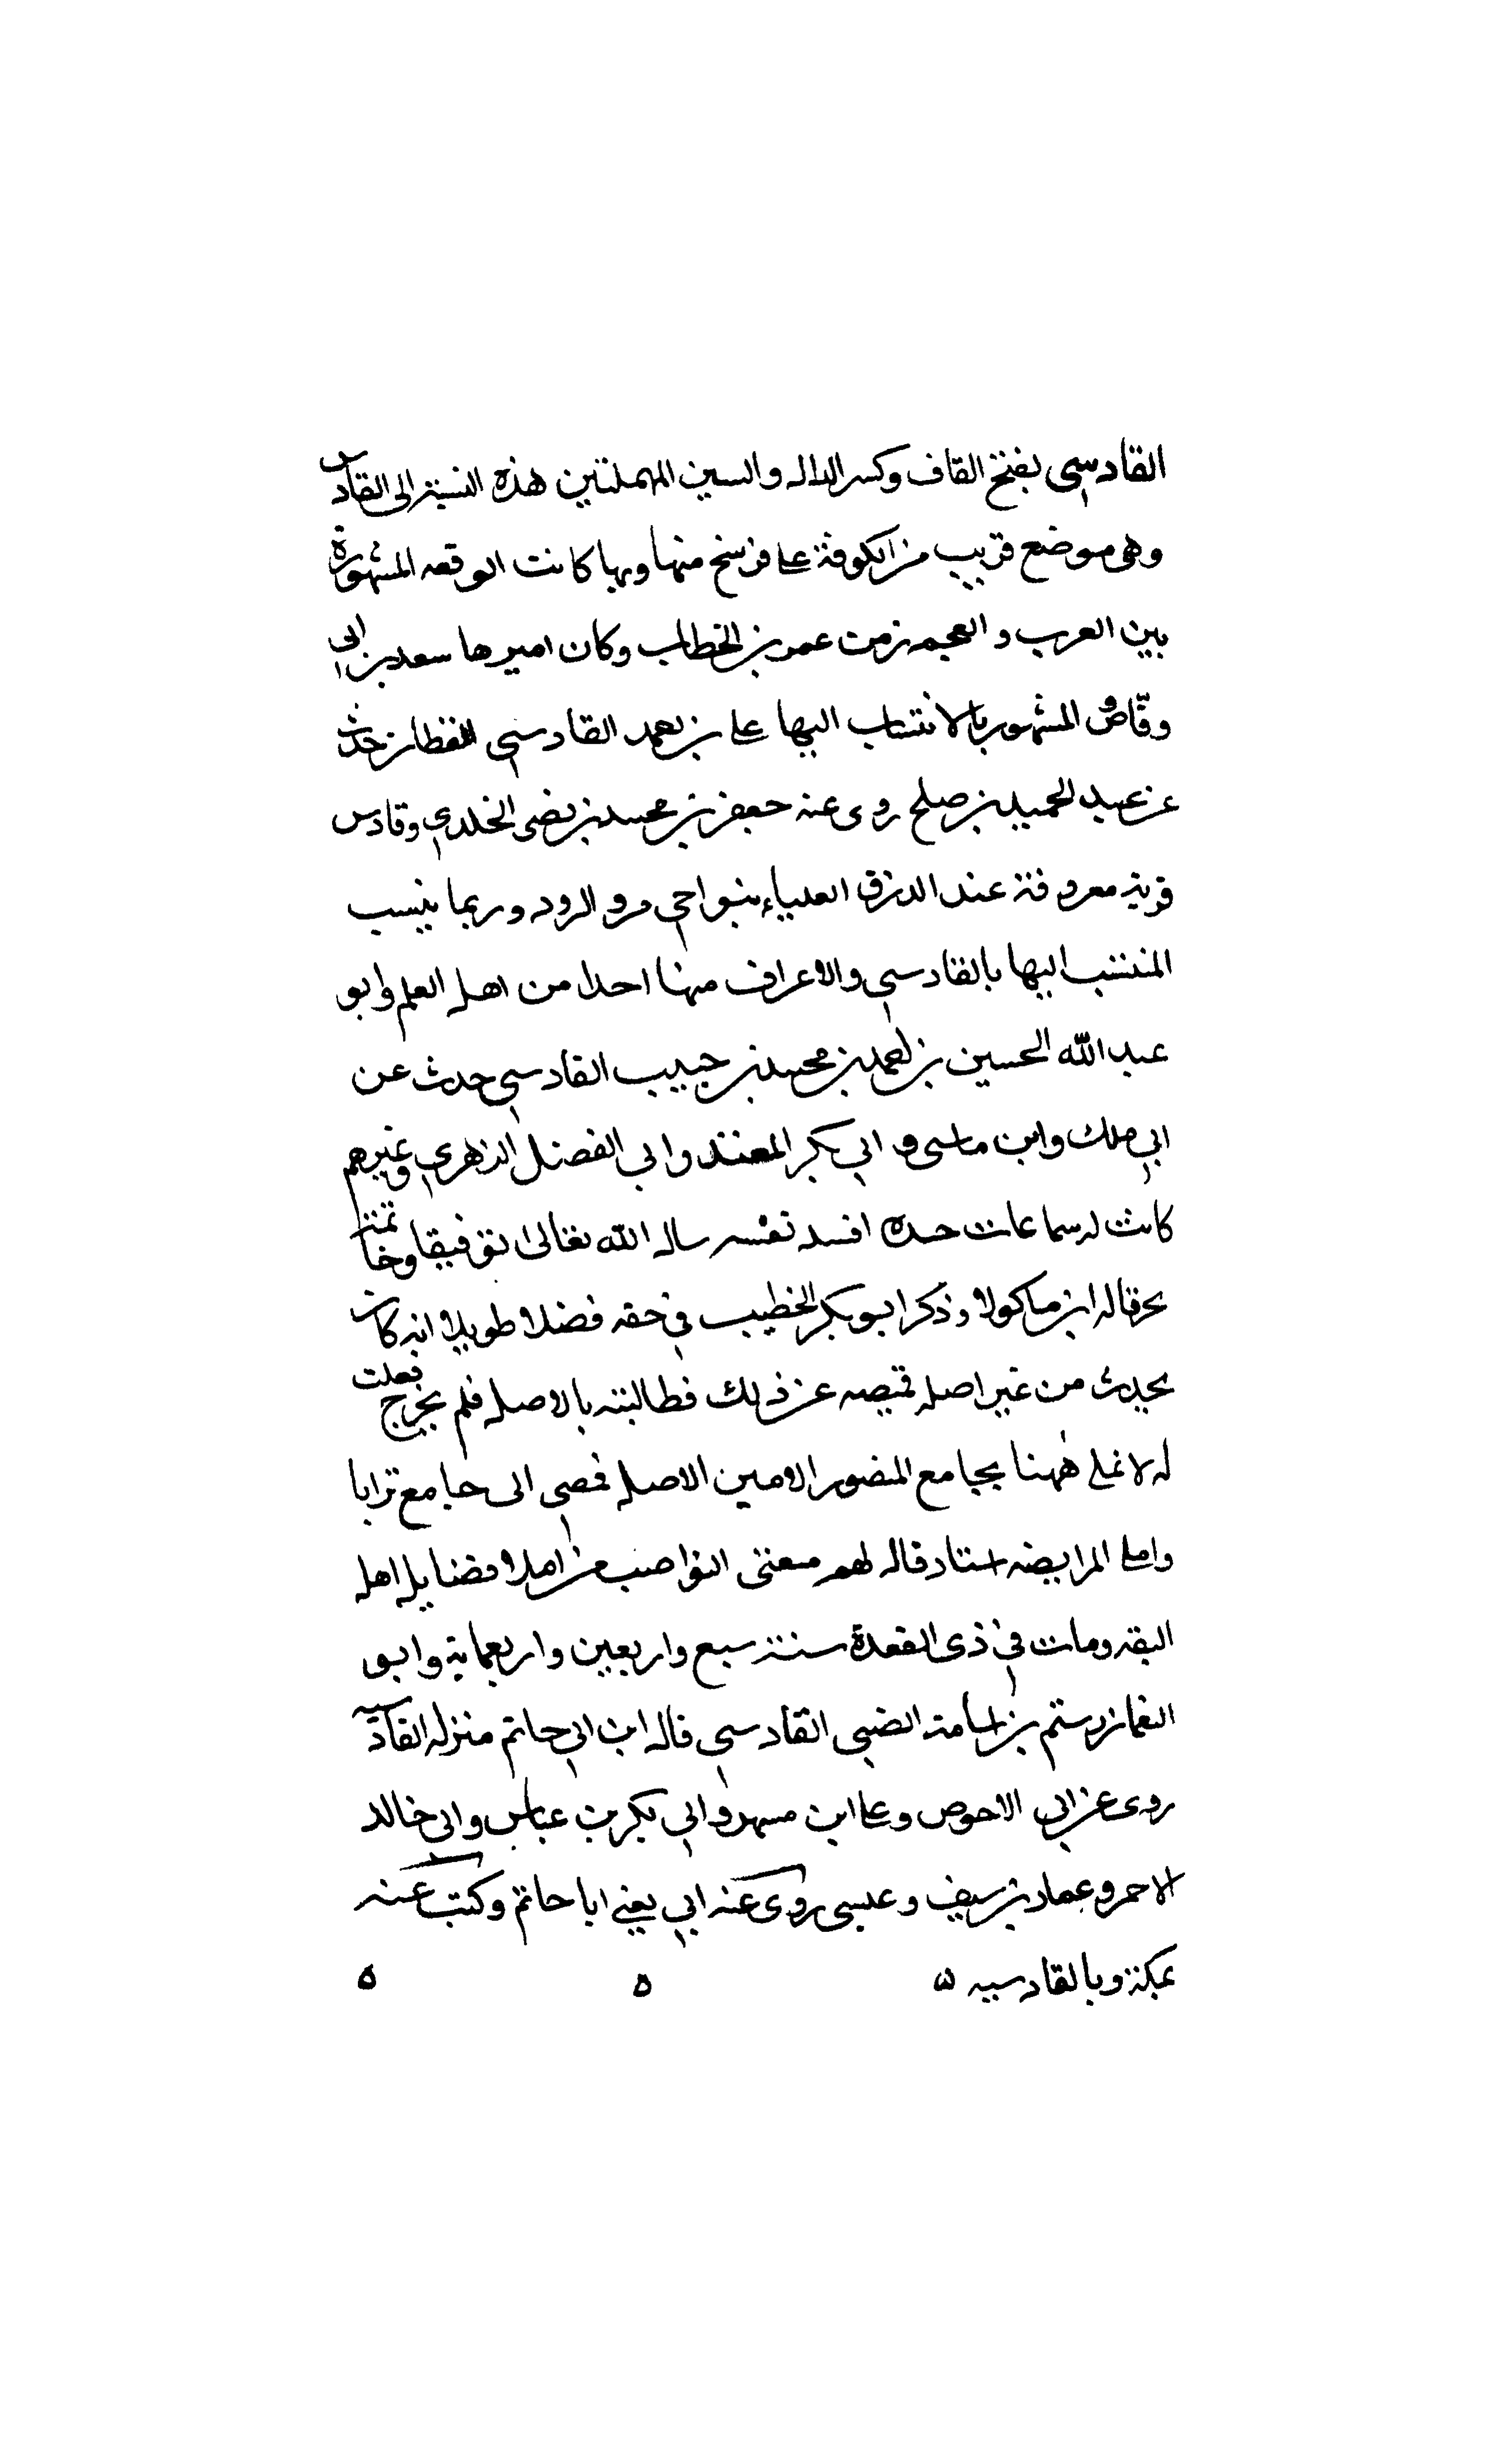 القادسي بفتح القاف وكسر الدال والسين المهملتين هذه النسبة الى القادس
وهى موضع قريب من الكوفة على فرسخ منها وبها كانت الوقعه المشهورة
بين العرب والعجم زمن عمر بن الخطاب وكان اميرها سعد بن ابي
وقاص و المشهور بالانتساب اليها على بن احمد القادسي القطان حدث
عن عبد الحميد بن صلح روى عنه جعفر بن محمد بن نصر الخلدي وقادس
قرية معروفة عند الدزق العلياء بنواحي مرو الرود وربما ينسب
المنتسب اليها بالقادسي والا اعرف منها احدا من اهل العلم وابو
عبد الله الحسين بن احمد بن محمد بن حبيب القادسي حدث عن
ابي ملك وابن ماسى و ابي بكر المعتد وابي الفضل الزهري وغيرهم
كانت له سماعات حسده افسد نفسه ساله الله تعالى توفيقا وخاتمة
بحر قاله ابن ماكولا وذكر ابو بكر الخطيب في حقه فضلا طويلا انه كان
يحدث من غير اصل فيصه عن ذلك فطالبته بالاصل فلم يخرج فعلت
له لا تمل ههنا بجامع المنصور الا من الاصل فمصى الى جامع براثا
واملى المرابضه استاد قال لهم منعتنى النواصب من املا فضايل اهل
البقه ومات في ذى القعدة سنة سبع واربعين واربعماية وابو
النعمان رستم بن اسامة الضبى القادسي قال ابن ابي حاتم منزله القادسيه
روى عن ابي الاحوص وعلى ابن مسهر وابي بكر بن عباس وابى خالد
الاحمر وعماد بن سيف وعيسى روى عنه ابي يعني ابا حاتم وكتب عنه
بمكة وبالقادسيه ه ه ه